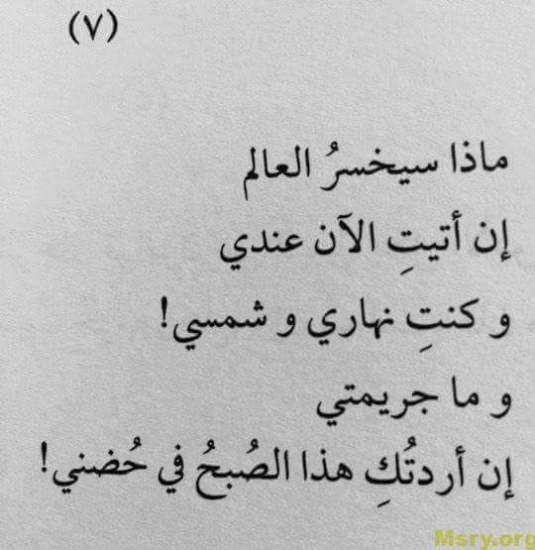 (٧)
ماذا سيخسرُ العالم
إن أتيتِ الآن عندي
و كنتِ نهاري و شمسي!
و ما جريمتي
إن أردتُكِ هذا الصُبحُ في حُضني!
Msry.org